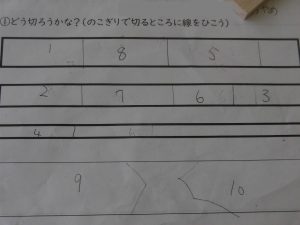 ①どう切ろうかな?(のこぎりで切るところに線をひこう)
1 8 5
2 7 6 3
4
9 10